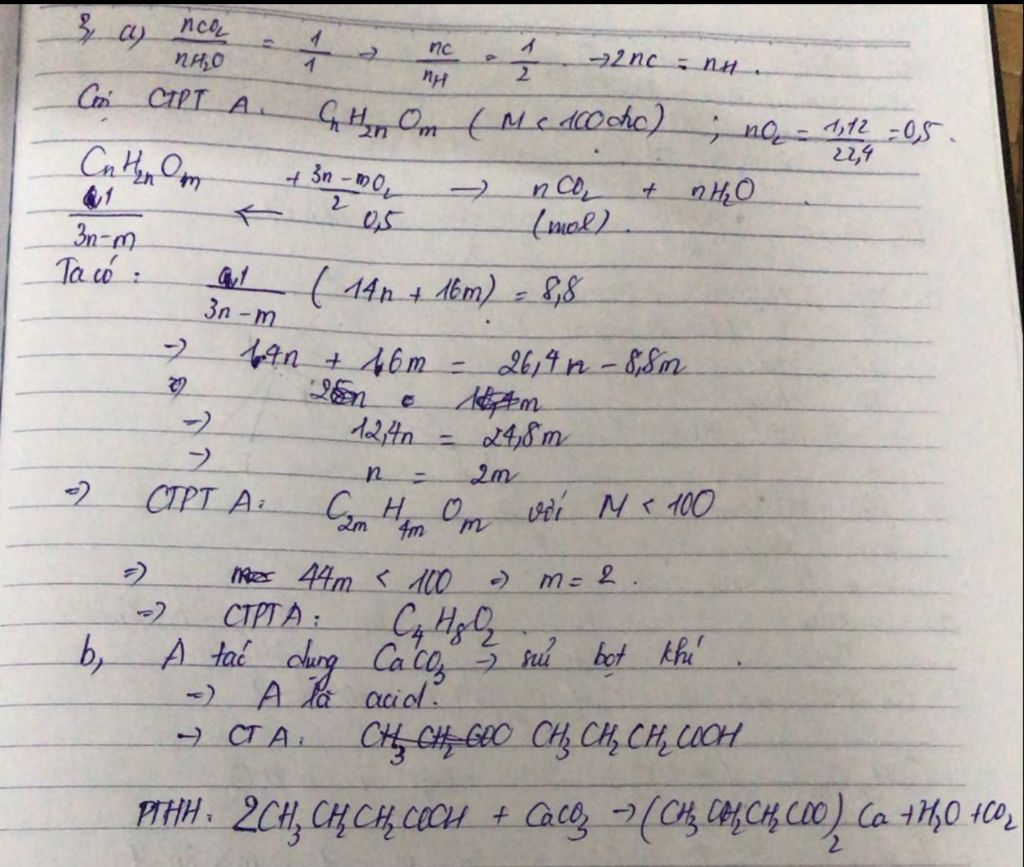 3, a) nCO₂/nH₂O = 1/1 → nC/nH = 1/2 . → 2nC = nH .
Gọi CTPT A: CₙH₂ₙOₘ ( M < 100 đvC) ; nO₂ = 1,12/22,4 = 0,5 .
CₙH₂ₙOₘ + (3n-m)/2 O₂ → nCO₂ + nH₂O .
1/(3n-m) ← 0,5 (mol) .
Ta có : 1/(3n-m) ( 14n + 16m) = 8,8
→ 14n + 16m = 26,4n - 8,8m
→ 12,4n = 24,8m
→ n = 2m
⇒ CTPT A: C₂ₘH₄ₘOₘ với M < 100
⇒ 44m < 100 ⇒ m = 2 .
⇒ CTPT A : C₄H₈O₂ .
b, A tác dụng CaCO₃ → sủi bọt khí .
⇒ A là acid .
→ CT A : CH₃CH₂COO CH₃CH₂CH₂COOH
PTHH: 2CH₃CH₂CH₂COOH + CaCO₃ → (CH₃CH₂CH₂COO)₂Ca + H₂O + CO₂